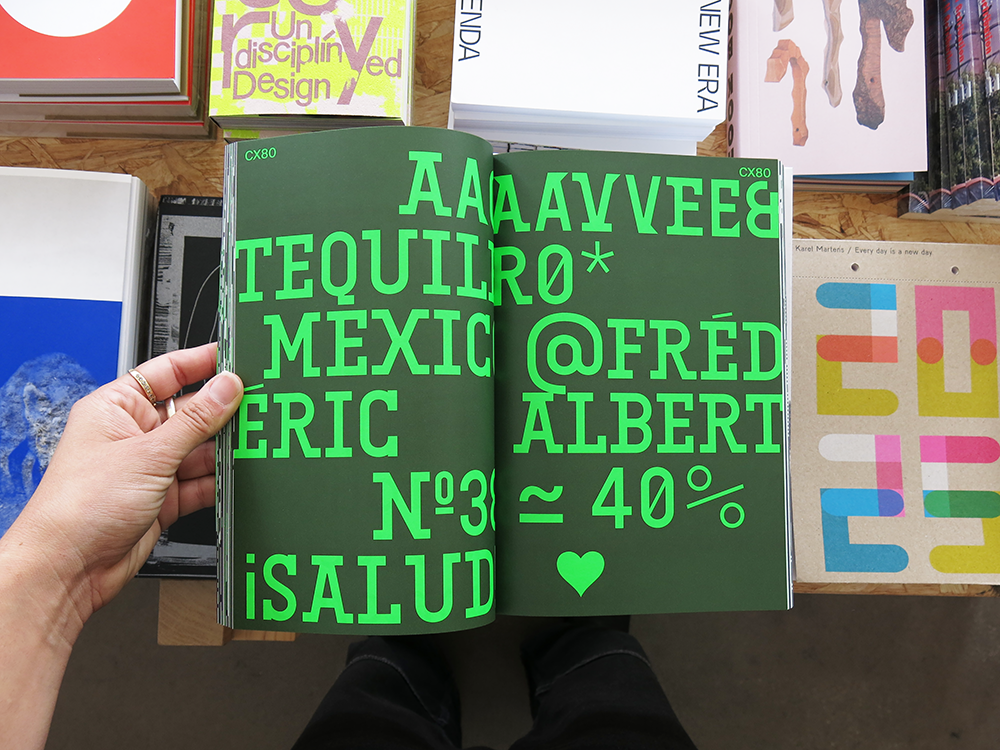 Un
disciplínyed
Design
ENDA
NEW ERA
Karel Martens / Every day is a new day
CX80
AA
TEQUIL
MEXIC
ÉRIC
Nº38
¡SALUD
CX80
AAVVEE&
R0*
@FRÉD
ALBERT
≃ 40%
♥